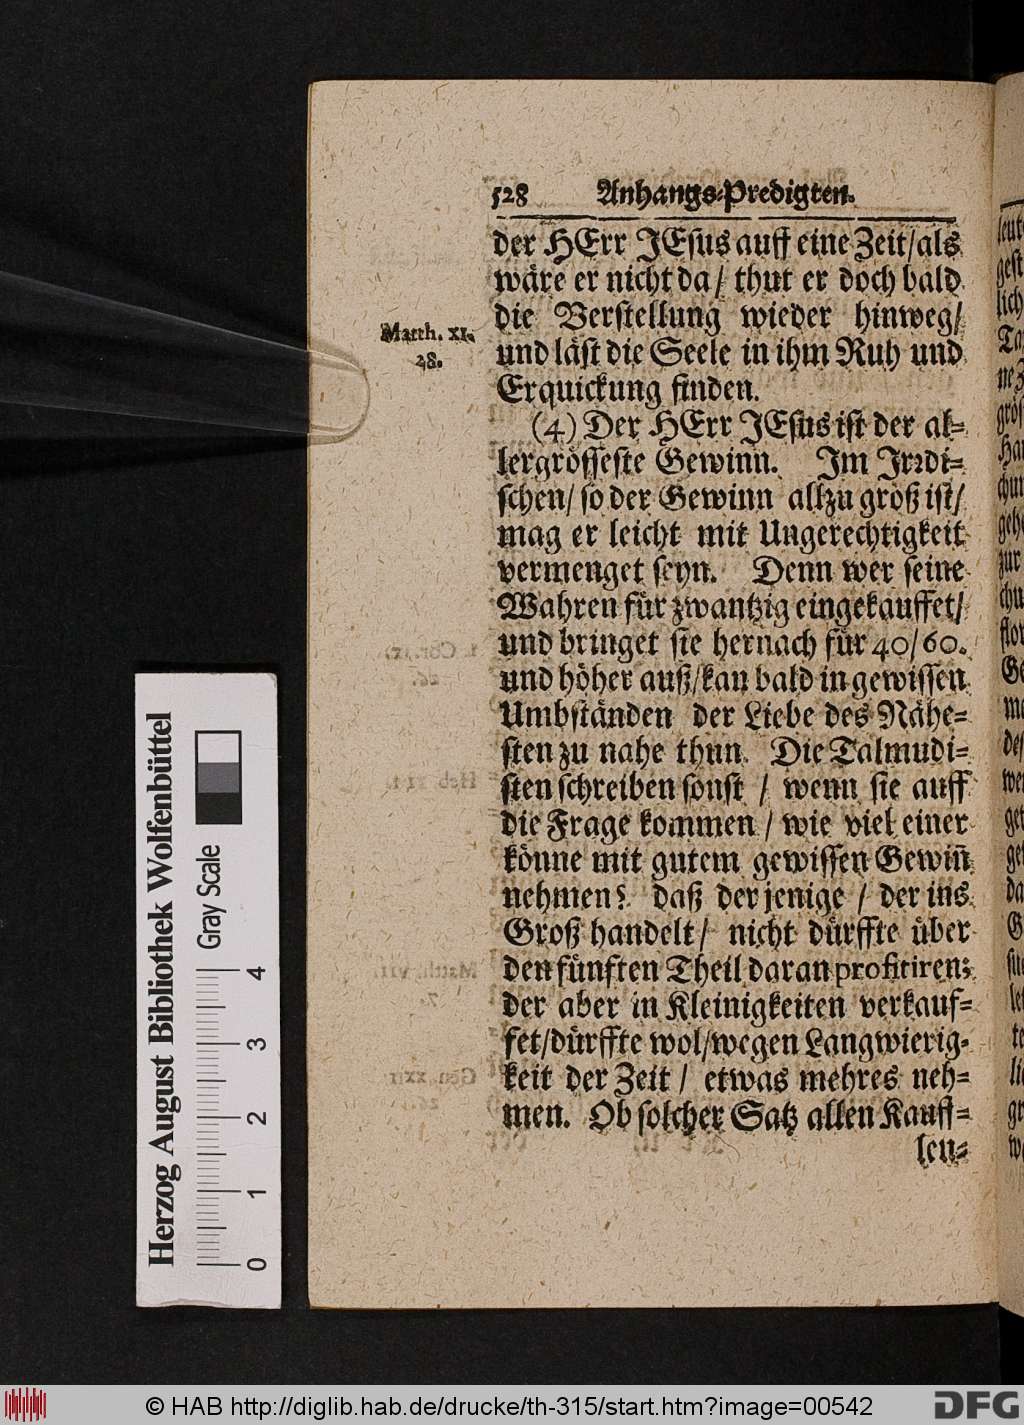 528 Anhangs-Predigten.
der HErr JEsus auff eine Zeit/als
wäre er nicht da/ thut er doch bald
die Verstellung wieder hinweg/
und läst die Seele in ihm Ruh und
Erquickung finden.
Matth. XI.
28.
(4) Der HErr JEsus ist der al-
lergrösseste Gewinn. Im Irrdi-
schen/ so der Gewinn allzu groß ist/
mag er leicht mit Ungerechtigkeit
vermenget seyn. Denn wer seine
Wahren für zwantzig eingekauffet/
und bringet sie hernach für 40/60.
und höher auß/kan bald in gewissen
Umbständen der Liebe des Nähe-
sten zu nahe thun. Die Talmudi-
sten schreiben sonst / wenn sie auff
die Frage kommen / wie viel einer
könne mit gutem gewissen Gewiñ
nehmen? daß der jenige / der ins
Groß handelt/ nicht dürffte über
den fünften Theil daran profitiren;
der aber in Kleinigkeiten verkauf-
fet/dürffte wol/wegen Langwierig-
keit der Zeit / etwas mehres neh-
men. Ob solcher Satz allen Kauff-
leu-
Herzog August Bibliothek Wolfenbüttel
Gray Scale
0 1 2 3 4
© HAB http://diglib.hab.de/drucke/th-315/start.htm?image=00542
DFG